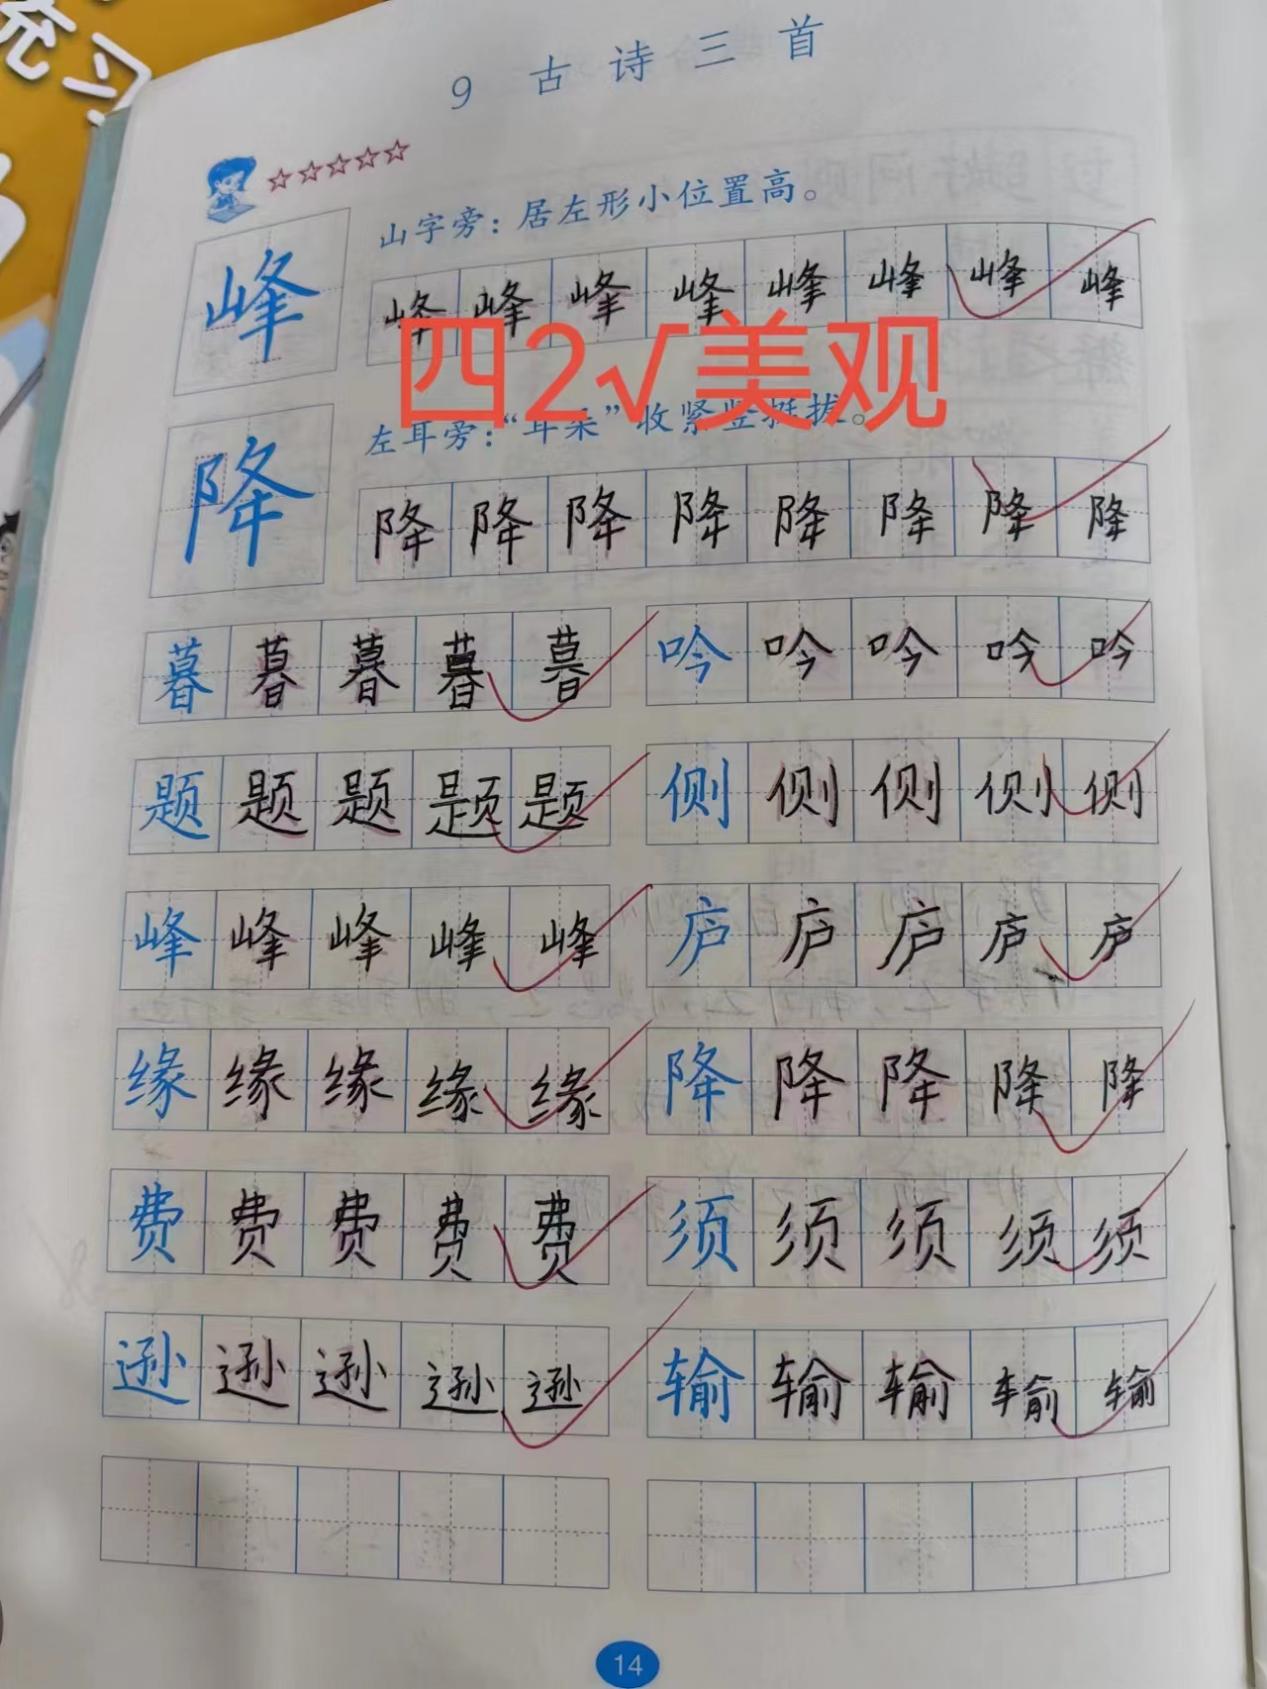 9 古诗三首
山字旁：居左形小位置高。
峰 峰 峰 峰 峰 峰 峰 峰 峰
四2√美观
左耳旁：“耳朵”收紧竖挺拔。
降 降 降 降 降 降 降 降 降
暮 暮 暮 暮 暮 吟 吟 吟 吟 吟
题 题 题 题 题 侧 侧 侧 侧 侧
峰 峰 峰 峰 峰 庐 庐 庐 庐 庐
缘 缘 缘 缘 缘 降 降 降 降 降
费 费 费 费 费 须 须 须 须 须
逊 逊 逊 逊 逊 输 输 输 输 输
14